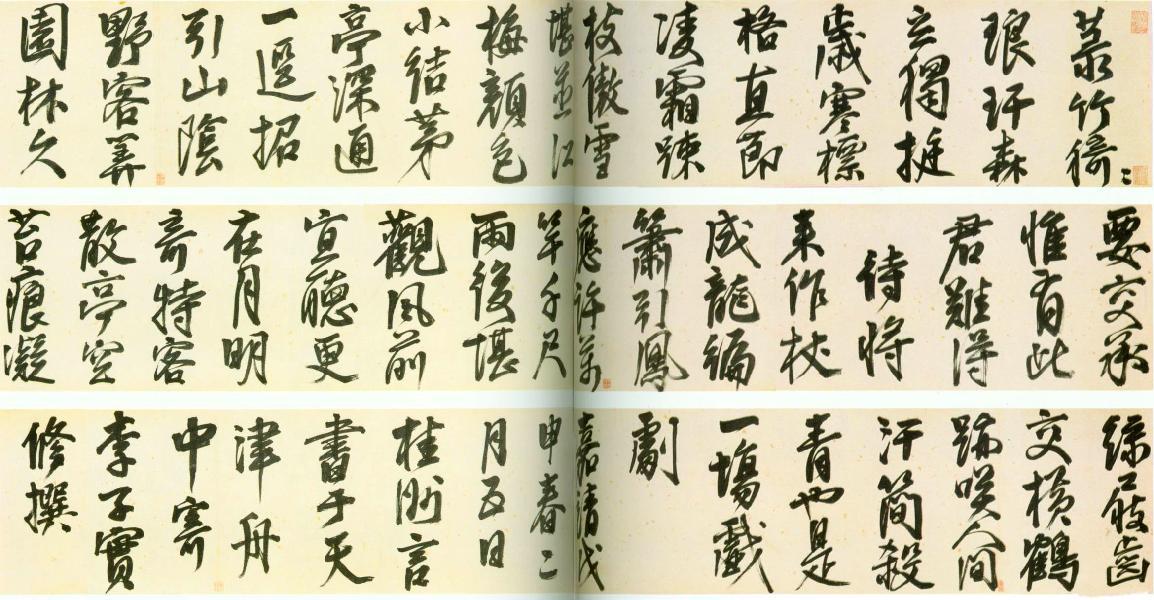 菉竹猗〻
琅玕森
立獨挺
歲寒標
格直節
凌霜踈
枝傲雪
堪並江
梅顏色
小結茅
亭深通
一逕招
引山陰
野客算
園林久
要交承
惟有此
君難得
待將
來作杖
成龍編
簫引鳳
應許萬
竿千尺
雨後堪
觀風前
宜聽更
在月明
奇特客
散亭空
苔痕凝
綠屐齒
交橫鶴
跡咲人間
汗簡殺
青也是
一場戲
劇
嘉靖戊
申春二
月五日
桂洲言
書于天
津舟
中寄
李子實
修撰